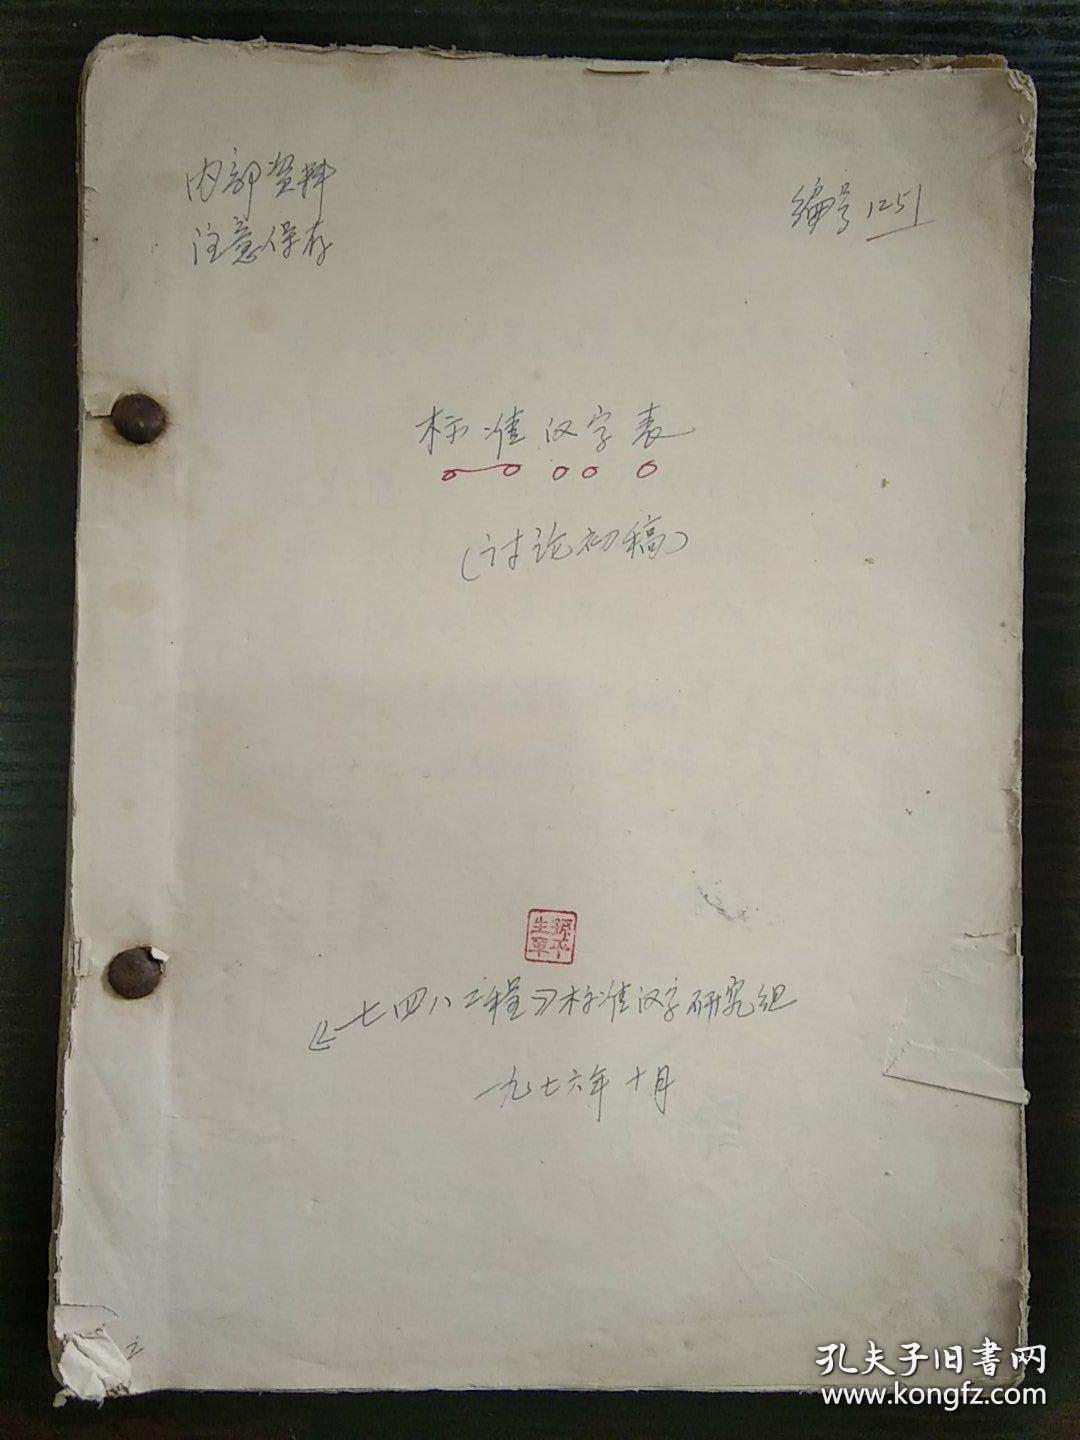 内部资料
注意保存
编号1251
标准汉字表
(讨论初稿)
《七四八工程》标准汉字研究组
一九七六年十月
孔夫子旧书网
www.kongfz.com